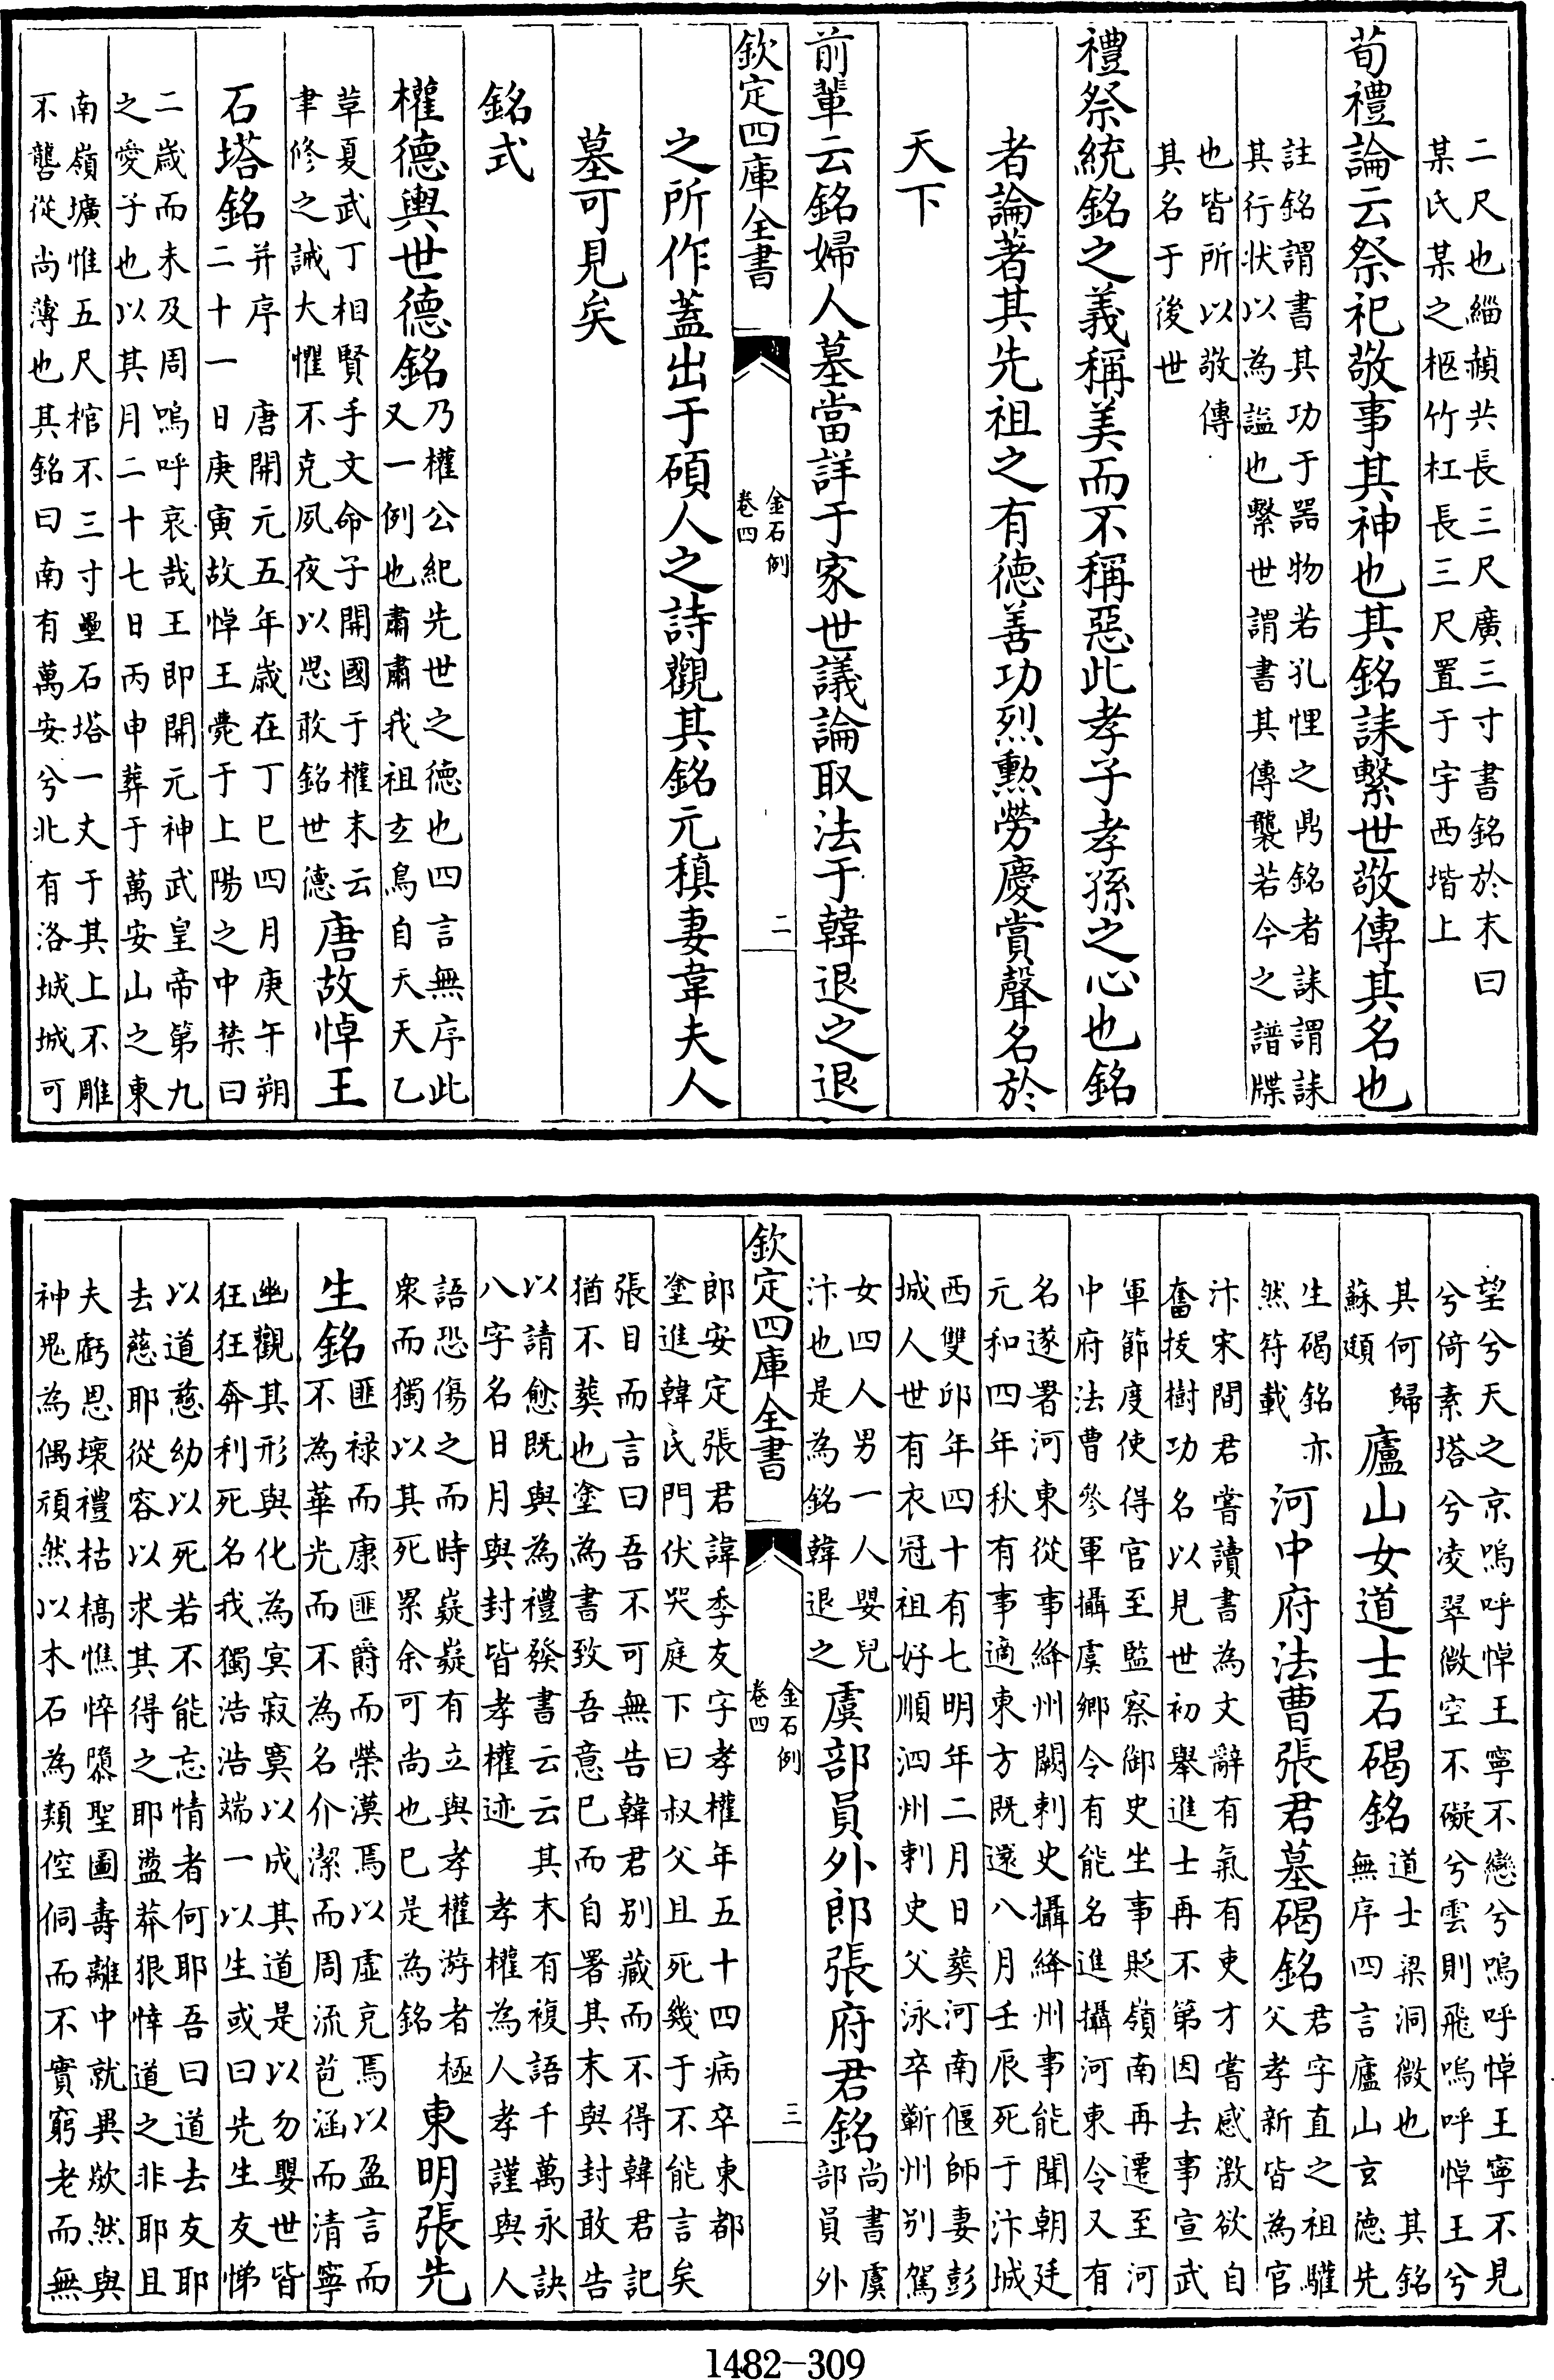 二尺也緇赬共長三尺廣三寸書銘於末曰
某氏某之柩竹杠長三尺置于宇西堦上
荀禮論云祭祀敬事其神也其銘誄繫世敬傳其名也
註銘謂書其功于器物若孔悝之鼎銘者誄謂誄
其行状以為謚也繫世謂書其傳襲若今之譜牒
也皆所以敬傳
其名于後世
禮祭統銘之義稱美而不稱惡此孝子孝孫之心也銘
者論著其先祖之有德善功烈勲勞慶賞聲名於
天下
前輩云銘婦人墓當詳于家世議論取法于韓退之退
欽定四庫全書
金石例
卷四
二
之所作蓋出于碩人之詩觀其銘元稹妻韋夫人
墓可見矣
銘式
權德輿世德銘
乃權公紀先世之德也四言無序此
又一例也肅肅我祖玄鳥自天天乙
草夏武丁相賢手文命子開國于權末云
聿修之誡大懼不克夙夜以思敢銘世德
唐故悼王
石塔銘
并序 唐開元五年歲在丁巳四月庚午朔
二十一日庚寅故悼王薨于上陽之中禁曰
二歲而未及周嗚呼哀哉王即開元神武皇帝第九
之愛子也以其月二十七日丙申葬于萬安山之東
南嶺壙惟五尺棺不三寸壘石塔一丈于其上不雕
不礱從尚薄也其銘曰南有萬安兮北有洛城城可
望兮天之京嗚呼悼王寧不戀兮嗚呼悼王寧不見
兮倚素塔兮凌翠微空不礙兮雲則飛嗚呼悼王兮
其何歸
蘇頲
廬山女道士石碣銘
道士梁洞微也 其銘
無序四言廬山玄德先
生碣銘亦
然符載
河中府法曹張君墓碣銘
君字直之祖驩
父孝新皆為官
汴宋間君嘗讀書為文辭有氣有吏才嘗感激欲自
奮拔樹功名以見世初舉進士再不第因去事宣武
軍節度使得官至監察御史坐事貶嶺南再遷至河
中府法曹參軍攝虞鄉令有能名進攝河東令又有
名遂署河東從事絳州闕刺史攝絳州事能聞朝廷
元和四年秋有事適東方既還八月壬辰死于汴城
西雙邱年四十有七明年二月日葬河南偃師妻彭
城人世有衣冠祖好順泗州刺史父泳卒蘄州别駕
女四人男一人嬰兒
汴也是為銘韓退之
虞部員外郎張府君銘
尚書虞
部員外
欽定四庫全書
金石例
卷四
三
郎安定張君諱季友字孝權年五十四病卒東都
塗進韓氏門伏哭庭下曰叔父且死幾于不能言矣
張目而言曰吾不可無告韓君别藏而不得韓君記
猶不葬也塗為書致吾意已而自署其末與封敢告
以請愈既與為禮發書云云其末有複語千萬永訣
八字名日月與封皆孝權迹 孝權為人孝謹與人
語恐傷之而時嶷嶷有立與孝權游者極
衆而獨以其死累余可尚也已是為銘
東明張先
生銘
匪禄而康匪爵而榮漠焉以虛充焉以盈言而
不為華光而不為名介潔而周流苞涵而清寧
幽觀其形與化為冥寂寞以成其道是以勿嬰世皆
狂狂奔利死名我獨浩浩端一以生或曰先生友悌
以道慈幼以死若不能忘情者何耶吾曰道去友耶
去慈耶從容以求其得之耶盪莽狠悻道之非耶且
夫虧恩壞禮枯槁憔悴隳聖圖壽離中就異欻然與
神鬼為偶頑然以木石為類倥侗而不實窮老而無
1482-309